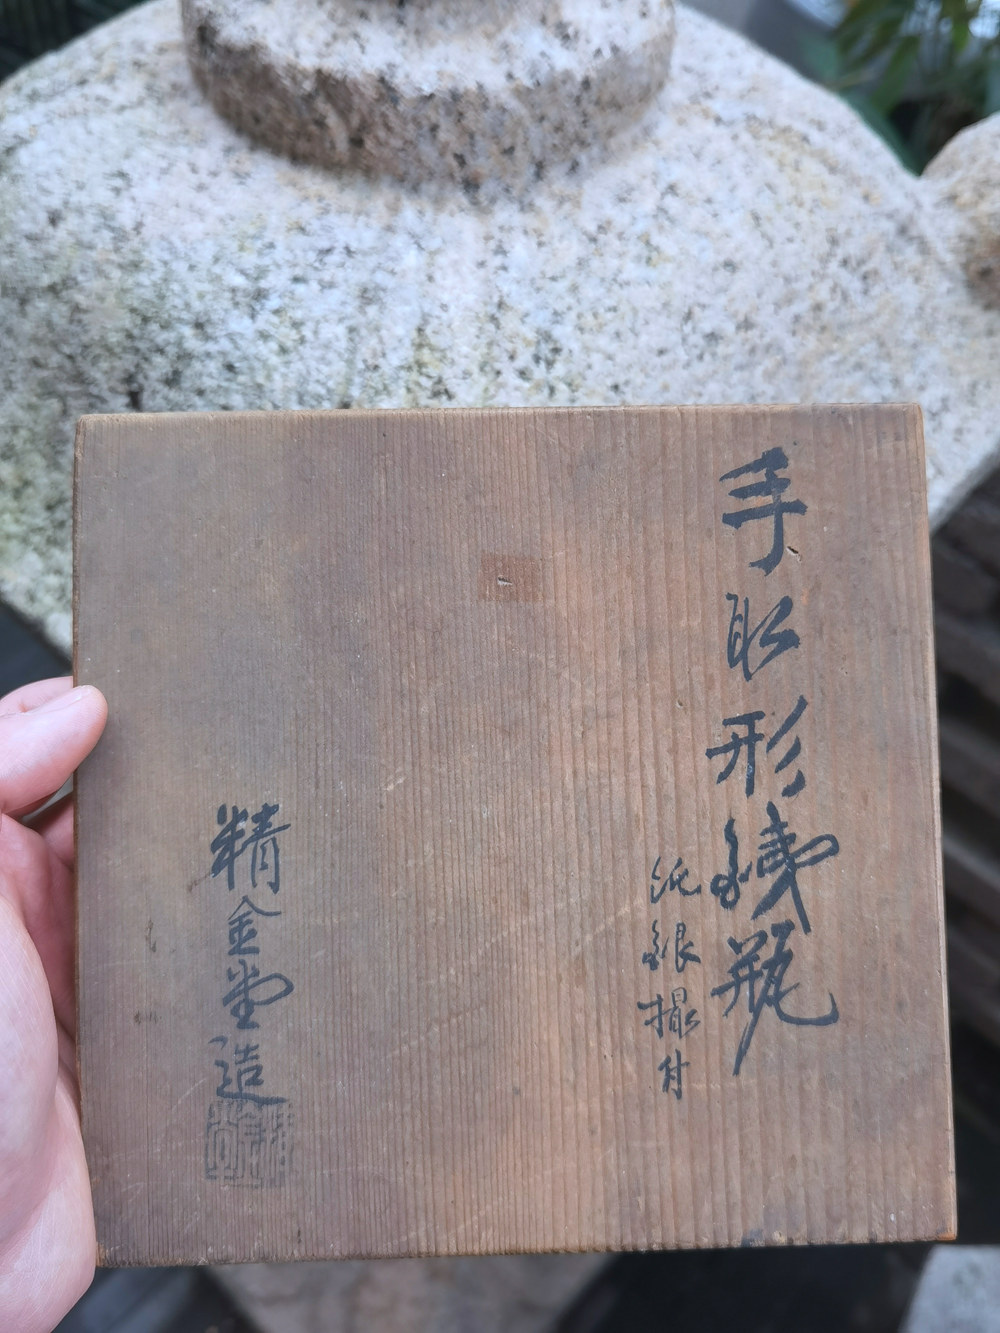 手取形鐵瓶
純銀撮付
精金堂造